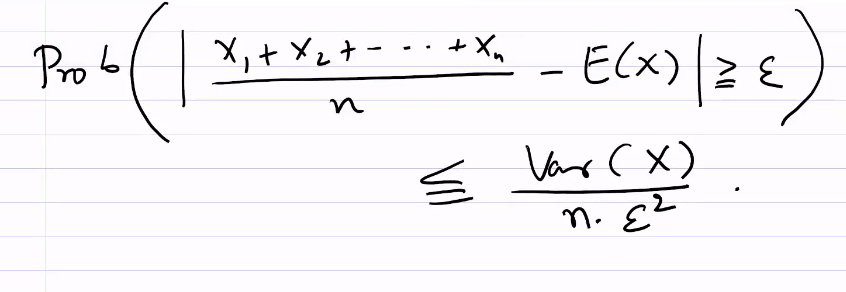 Prob(| (X₁ + X₂ + - - - - + Xₙ) / n - E(X) | ≧ ε)
≦ Var(X) / (n. ε²) .